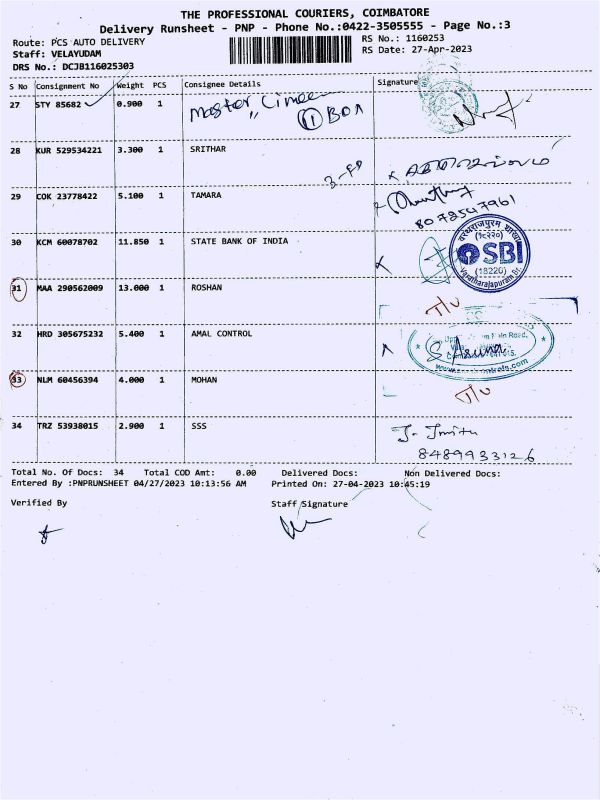 THE PROFESSIONAL COURIERS, COIMBATORE
Delivery Runsheet - PNP - Phone No.:0422-3505555 - Page No.:3
Route: PCS AUTO DELIVERY
RS No.: 1160253
Staff: VELAYUDAM
RS Date: 27-Apr-2023
DRS No.: DCJB116025303
S No Consignment No Weight PCS Consignee Details Signature
27 STY 85682 0.900 1 Master
① BOX
28 KUR 529534221 3.300 1 SRITHAR
29 COK 23778422 5.100 1 TAMARA
8078547961
30 KCM 60078702 11.850 1 STATE BANK OF INDIA
SBI
(18220)
Varatharajapuram Br.
31 MAA 290562009 13.000 1 ROSHAN
T/U
32 HRD 305675232 5.400 1 AMAL CONTROL
33 NLM 60456394 4.000 1 MOHAN
T/U
34 TRZ 53938015 2.900 1 SSS
8489933126
Total No. Of Docs: 34 Total COD Amt: 0.00 Delivered Docs: Non Delivered Docs:
Entered By :PNPRUNSHEET 04/27/2023 10:13:56 AM Printed On: 27-04-2023 10:45:19
Verified By Staff Signature